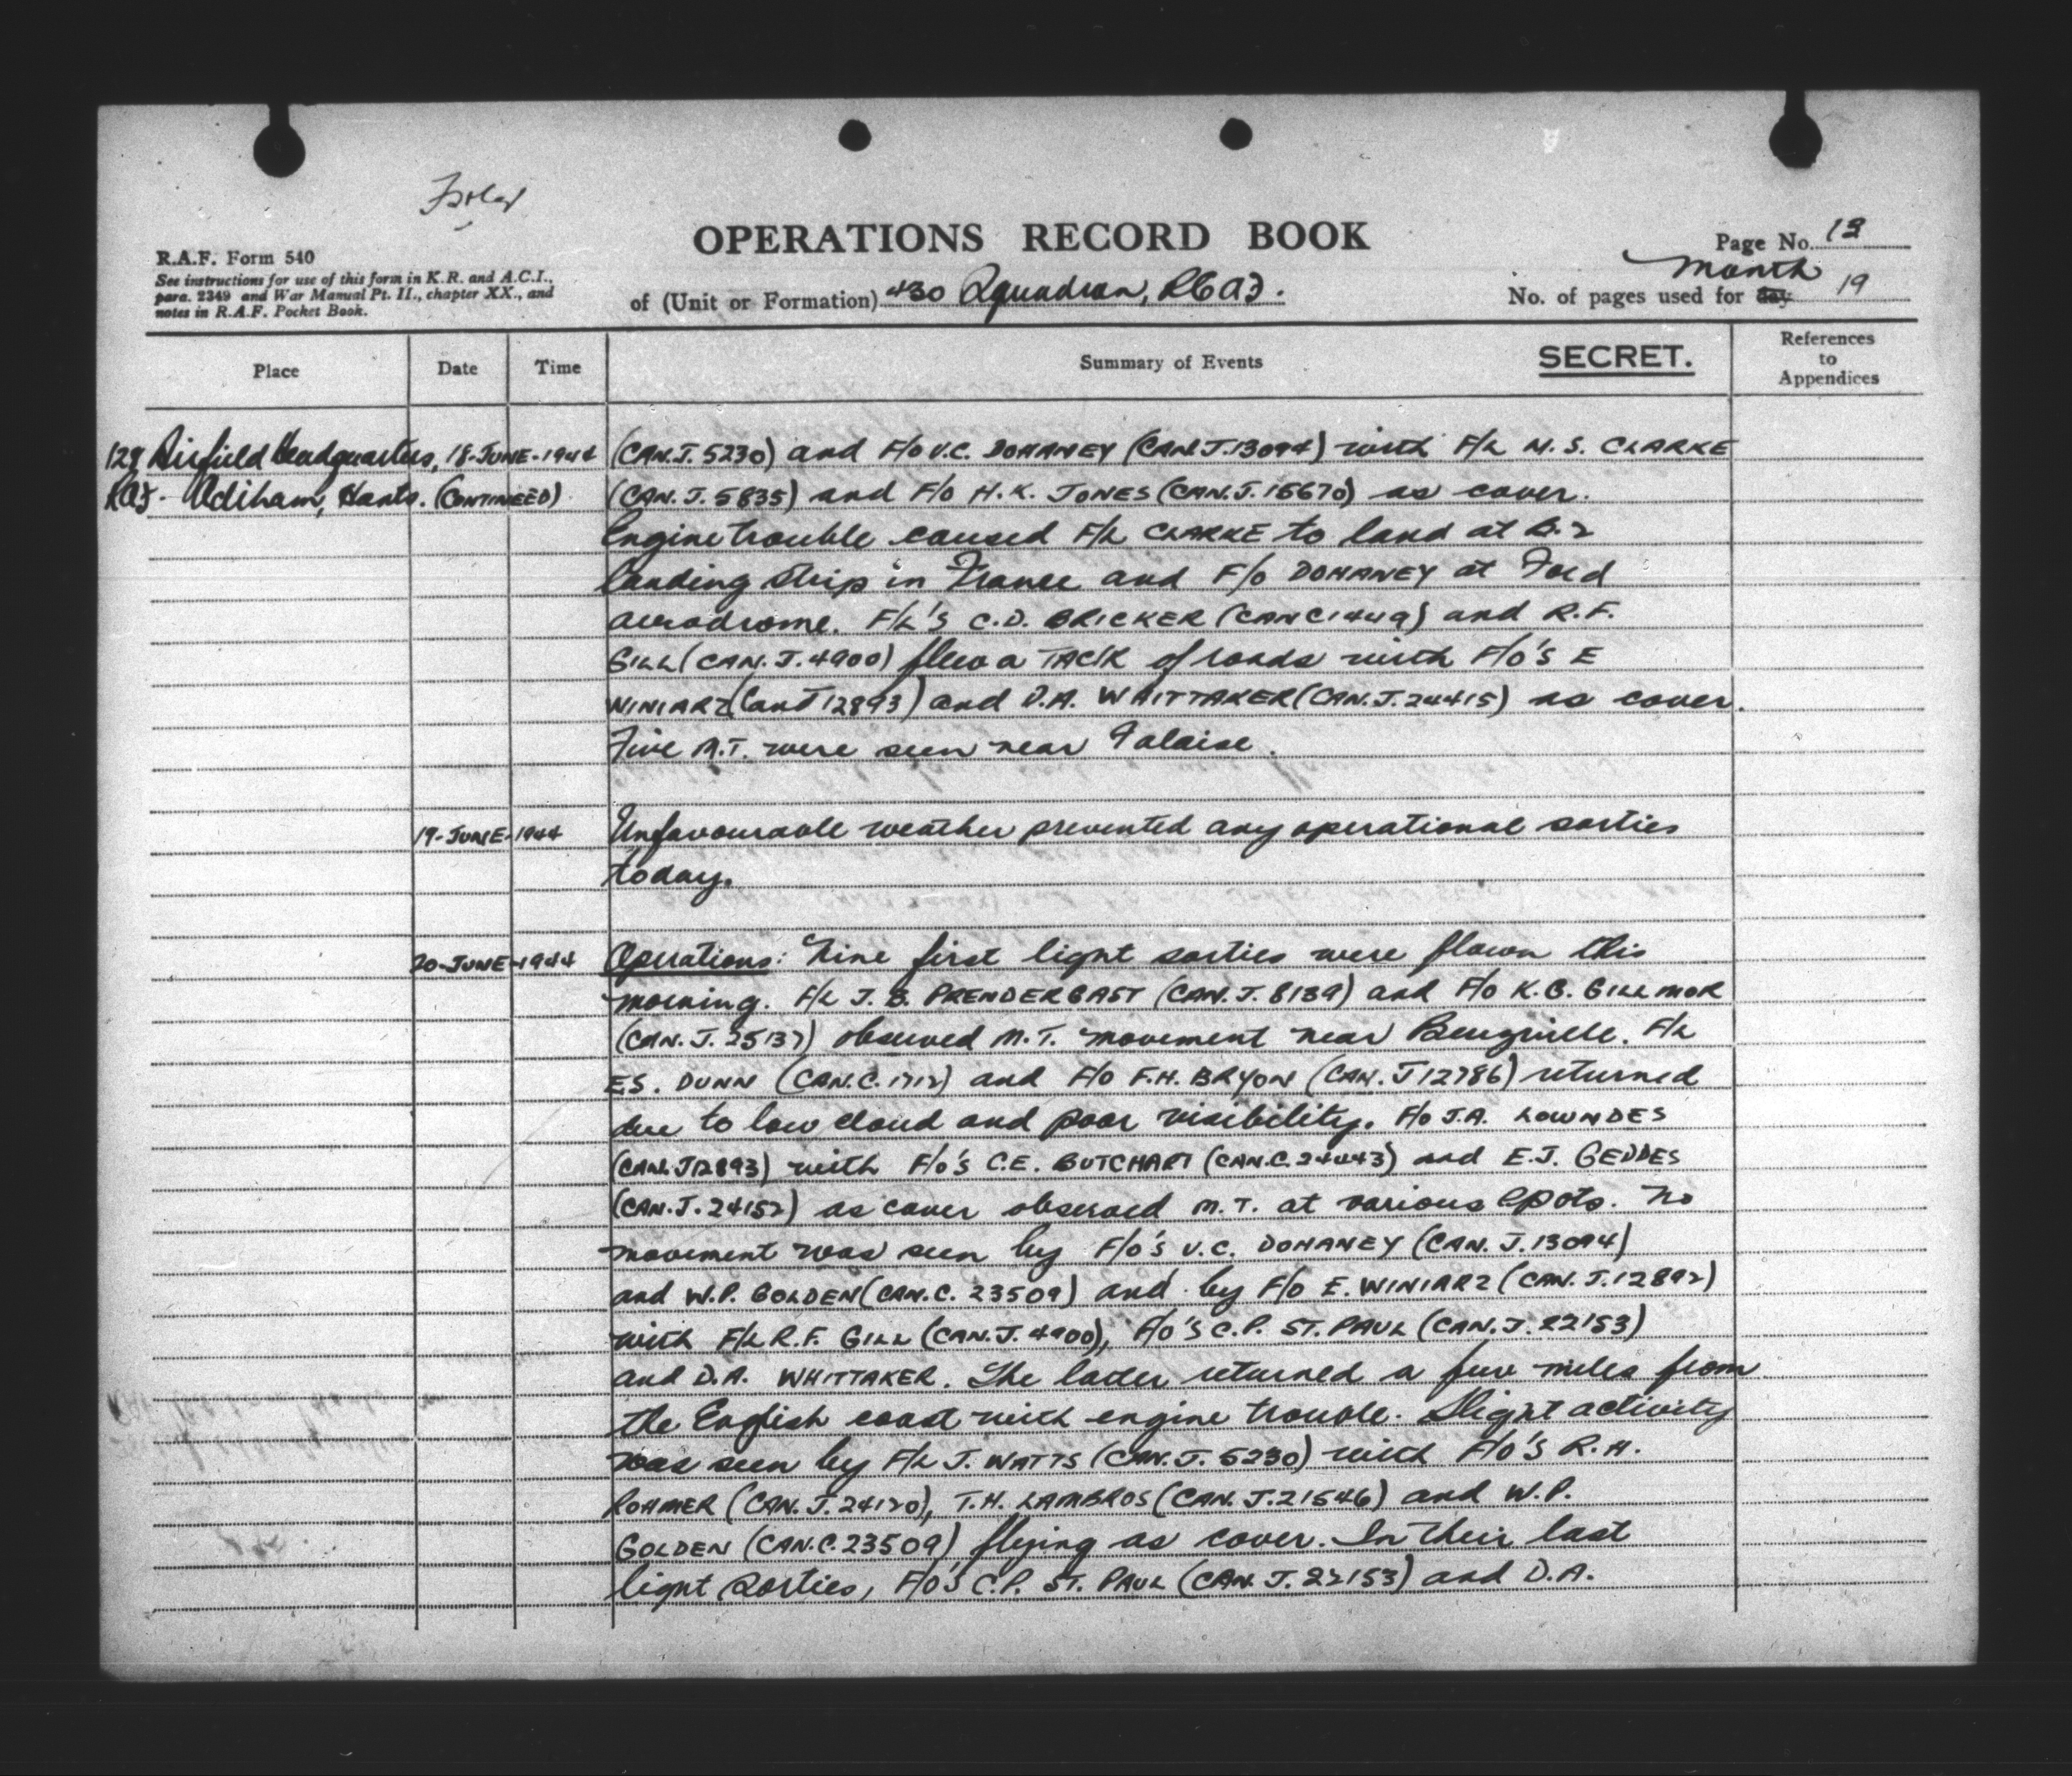 OPERATIONS RECORD BOOK
Page No. 13
R.A.F. Form 540
See instructions for use of this form in K.R. and A.C.I.,
para. 2349 and War Manual Pt. II., chapter XX., and
notes in R.A.F. Pocket Book.
of (Unit or Formation) 430 Squadron, RCAF.
month
No. of pages used for day 19
Place Date Time Summary of Events SECRET. References to Appendices
129 Airfield Headquarters, 18-JUNE-1944 (CAN.J.5230) and F/O V.C. DOHANEY (CAN.J.13094) with F/L M.S. CLARKE
RAF. Odiham, Hants. (CONTINEED) (CAN.J.5835) and F/O H.K. JONES (CAN.J.16670) as cover.
Engine trouble caused F/L CLARKE to land at B.2
landing strip in France and F/O DOHANEY at Ford
aerodrome. F/L'S C.D. BRICKER (CAN C1449) and R.F.
GILL (CAN.J.4900) flew a TAC/R of roads with F/O'S E
WINIARZ (Can J 12893) and D.A. WHITTAKER (CAN.J.24415) as cover.
Five M.T. were seen near Falaise.
19-JUNE-1944 Unfavourable weather prevented any operational sorties
today.
20-JUNE-1944 Operations: Nine first light sorties were flown this
morning. F/L J.B. PRENDERGAST (CAN.J.8139) and F/O K.G. GILLMOR
(CAN.J.25137) observed M.T. movement near Beuzville. F/L
E.S. DUNN (CAN.C.1712) and F/O F.H. BRYON (CAN.J12786) returned
due to low cloud and poor visibility. F/O J.A. LOWNDES
(CAN.J12893) with F/O'S C.E. BUTCHART (CAN.C.24043) and E.J. GEDDES
(CAN.J.24152) as cover observed M.T. at various spots. No
movement was seen by F/O'S V.C. DOHANEY (CAN.J.13094)
and W.P. GOLDEN (CAN.C.23509) and by F/O E. WINIARZ (CAN.J.12892)
with F/L R.F. GILL (CAN.J.4900), F/O'S C.P. ST. PAUL (CAN.J.22153)
and D.A. WHITTAKER. The later returned a few miles from
the English coast with engine trouble. Slight activity
was seen by F/L J. WATTS (CAN.J.5230) with F/O'S R.H.
ROHMER (CAN.J.24120), T.H. LAMBROS (CAN.J.21546) and W.P.
GOLDEN (CAN.C.23509) flying as cover. In their last
light sorties, F/O'S C.P. ST. PAUL (CAN.J.22153) and D.A.